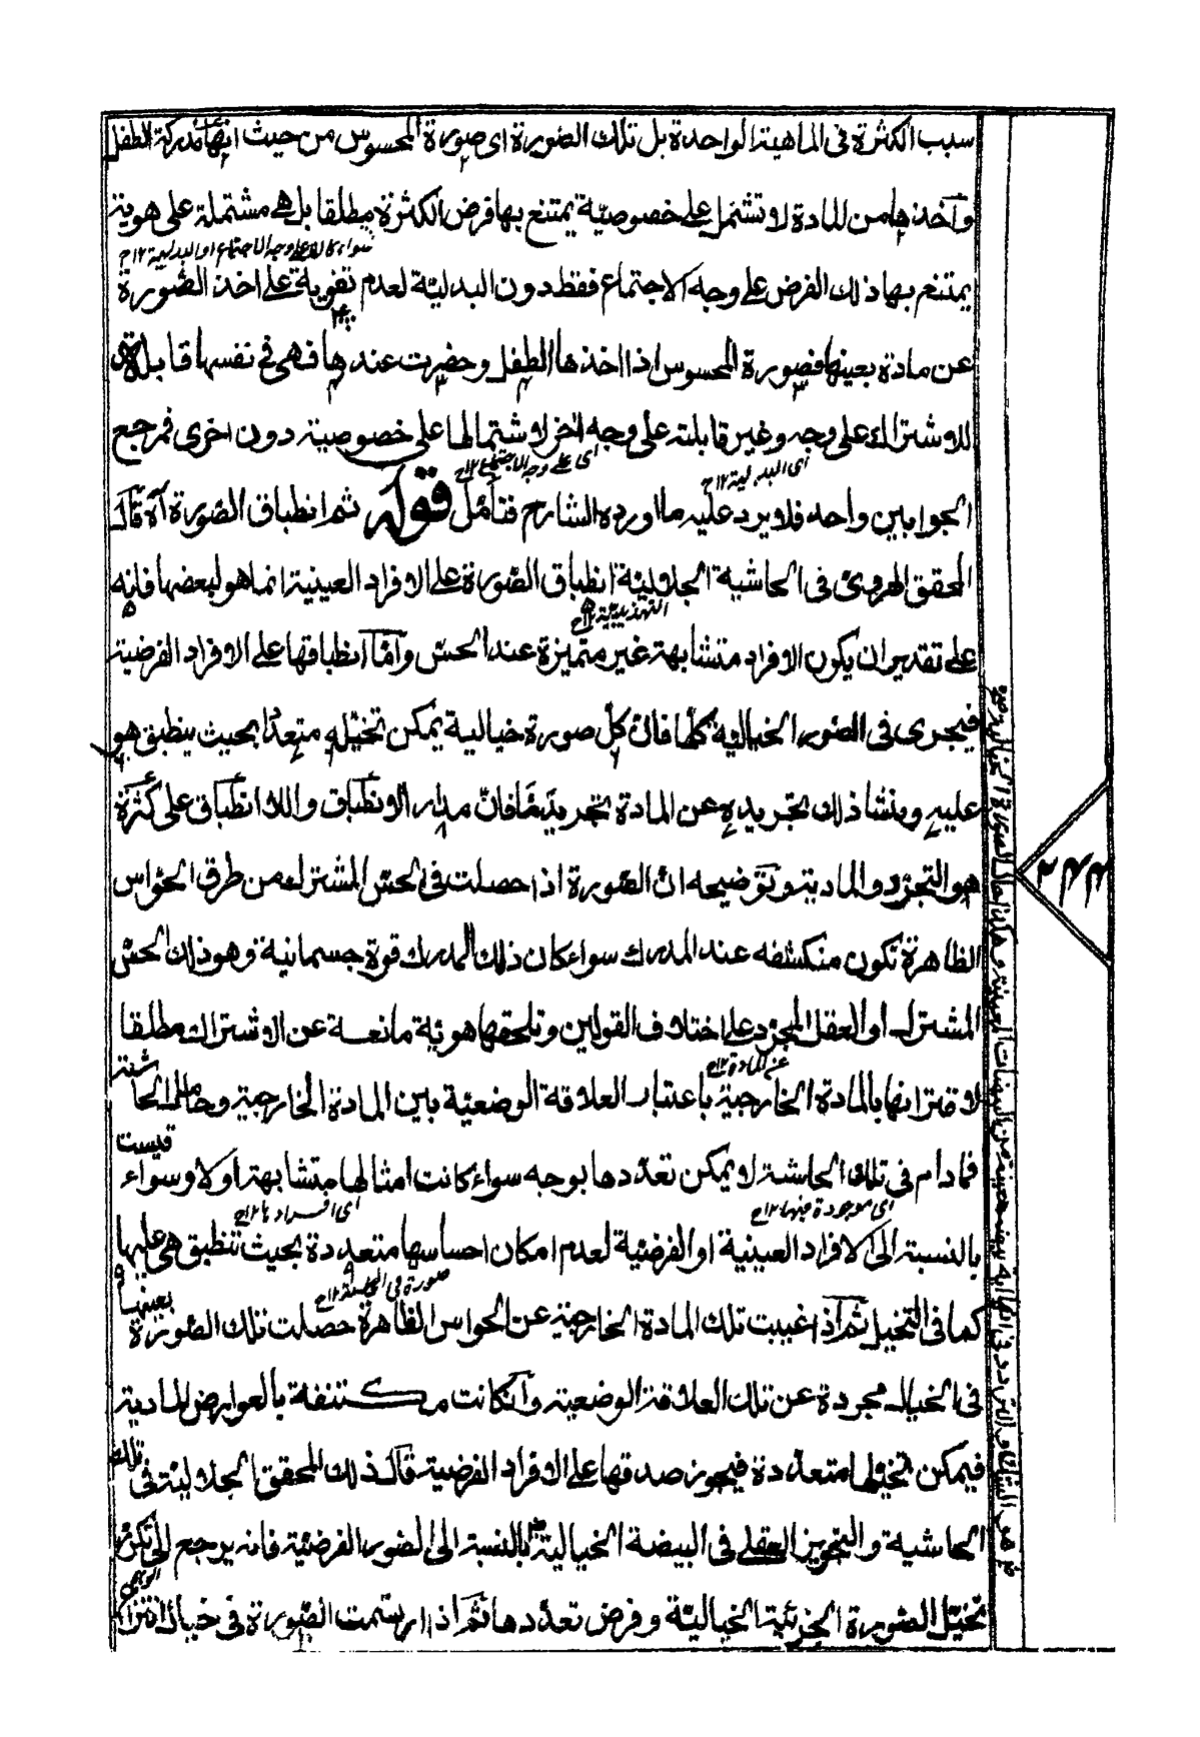 سبب الكثرة فى الماهية الواحدة بل تلك الصورة اى صورة المحسوس من حيث انها مدركة الطفل
وآخذها من المادة لا تشتمل على خصوصية يمتنع بها فرض الكثرة مطلقا بل هى مشتملة على هوية
سواء كان على وجه الاجتماع او البدلية ١٢ ح
يمتنع بها ذلك الفرض على وجه الاجتماع فقط دون البدلية لعدم تقوية على اخذ الصورة
عن مادة بعينها فصورة المحسوس اذا اخذها الطفل وحضرت عندها فهى فى نفسها قابلة
للاشتراك على وجه وغير قابلة على وجه اخر لاشتمالها على خصوصية دون اخرى فمرجع
اى البدلية ١٢ ح
اى على وجه الاجتماع ١٢ ح
الجوابين واحد فلا يرد عليه ما اورده الشارح فتأمل قوله ثم انطباق الصورة آه قال
المحقق الهروى فى الحاشية الجلالية انطباق الصورة على الافراد العينية انما هو لبعضها فانه
التهذيبية ١٢ ح
على تقدير ان يكون الافراد متشابهة غير متميزة عند الحس وآما انطباقها على الافراد الفرضية
فيجرى فى الصور الخيالية كلها فان كل صورة خيالية يمكن تخيله متعددا بحيث ينطبق هو
عليه ومنشأ ذلك تجريده عن المادة تجريد ما فان مدار الانطباق واللاانطباق على كثرة
هو التجرد والمادية وتوضيحه ان الصورة اذا حصلت فى الحس المشترك من طرق الحواس
الظاهرة تكون منكشفه عند المدرك سواء كان ذلك المدرك قوة جسمانية وهو ذلك الحس
المشترك او العقل المجرد على اختلاف القولين وتلحقها هوية مانعة عن الاشتراك مطلقا
عن المادة ١٢ ح
لاقترانها بالمادة الخارجية باعتبار العلاقة الوضعية بين المادة الخارجية وحامل الحاشة
فما دام فى تلك الحاشة لا يمكن تعددها بوجه سواء كانت امثالها متشابهة او لا وسواء قيست
اى موجودة فيها ١٢ ح
اى افرادها ١٢ ح
بالنسبة الى الافراد العينية او الفرضية لعدم امكان احساسها متعددة بحيث تنطبق هى عليها
صورة فى الحاسة ١٢ ح
كما فى التخيل ثم آذا غيبت تلك المادة الخارجية عن الحواس الظاهرة حصلت تلك الصورة بعينها
فى الخيال مجردة عن تلك العلاقة الوضعية وآن كانت مكتنفة بالعوارض المادية
فيمكن تخيلها متعددة فيجوز صدقها على الافراد الفرضية قال ذلك المحقق الجلالية فى تلك
الحاشية والتجويز العقلى فى البيضة الخيالية بالنسبة الى الصور الفرضية فانه يرجع الى تكثر
تخيل الصورة الجزئية الخيالية وفرض تعددها ثم آذا ارتسمت الصورة فى خيال
٢٤٤